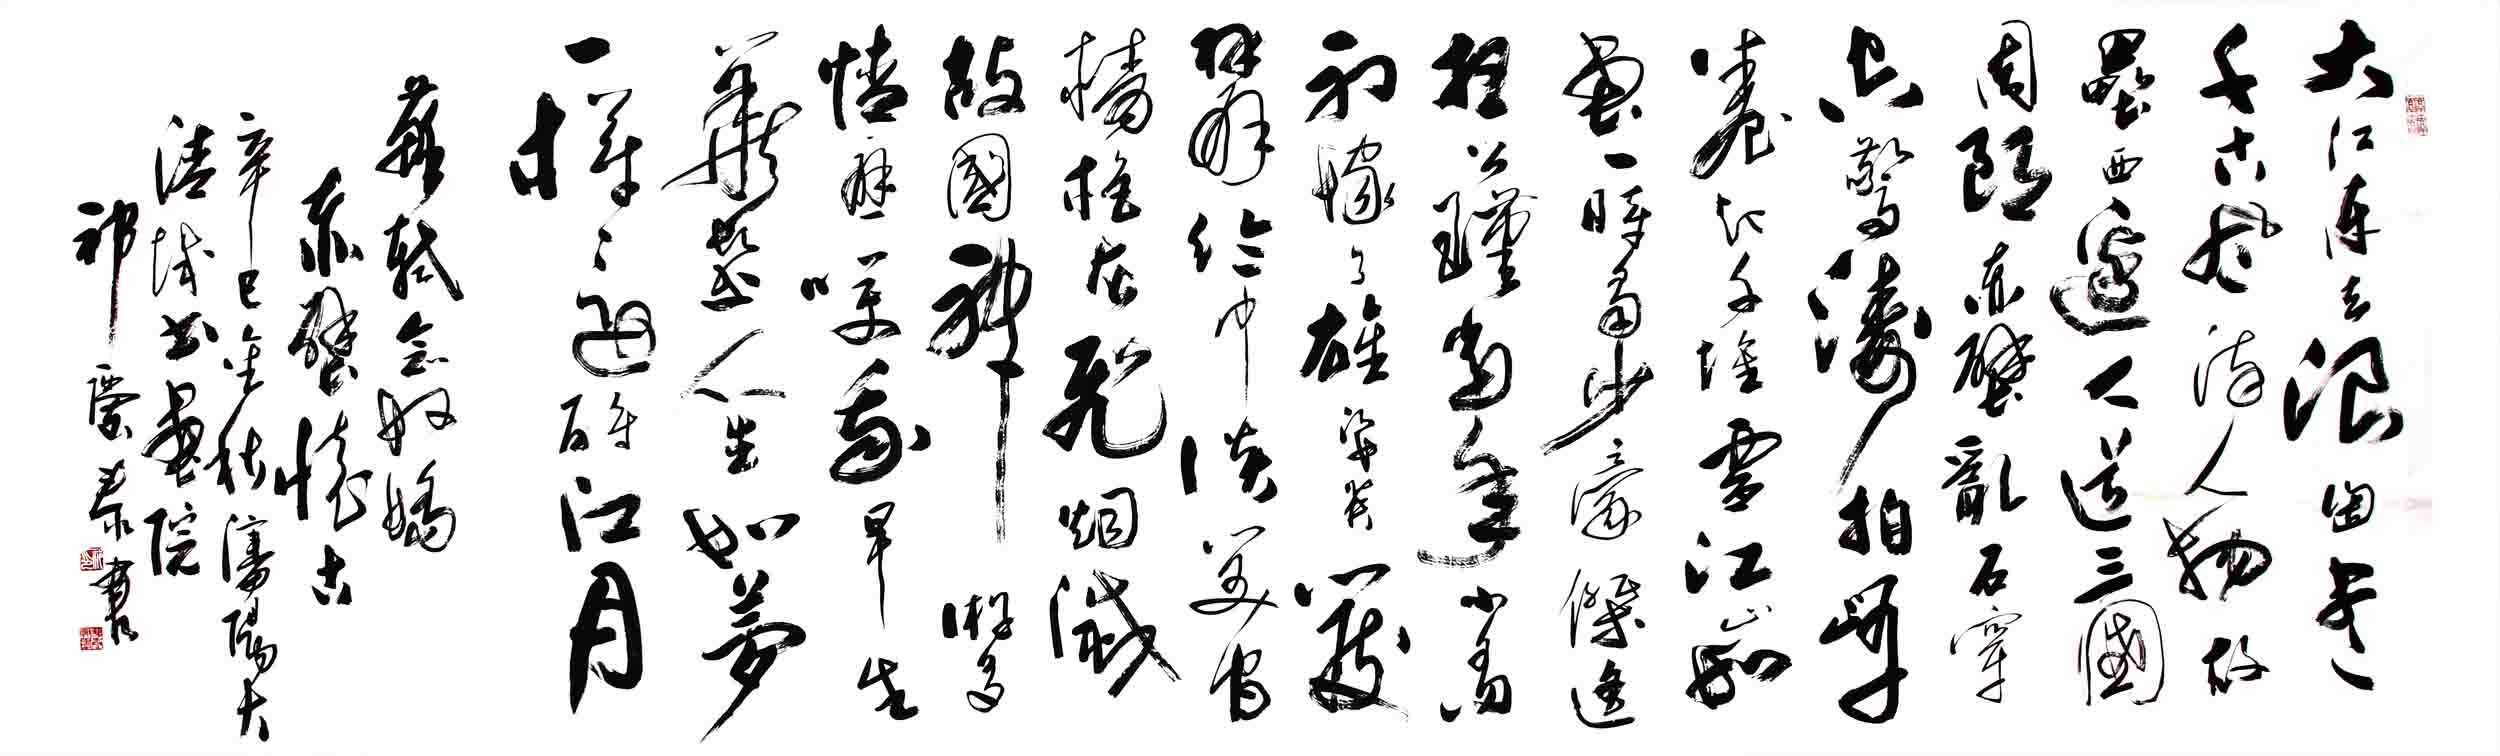 大江東去浪淘盡
千古風流人物故
壘西邊人道三國
周郎赤壁亂石穿
空驚濤拍岸
捲起千堆雪江山如
畫一時多少豪傑遙
想公瑾當年小喬
初嫁了雄姿英發
羽扇綸巾談笑間
檣櫓灰飛烟滅
故國神游多
情應笑我早生
華髮人生如夢
一樽還酹江月
蘇軾念奴嬌
赤壁懷古
辛巳金秋瀋陽大
書畫院
祁